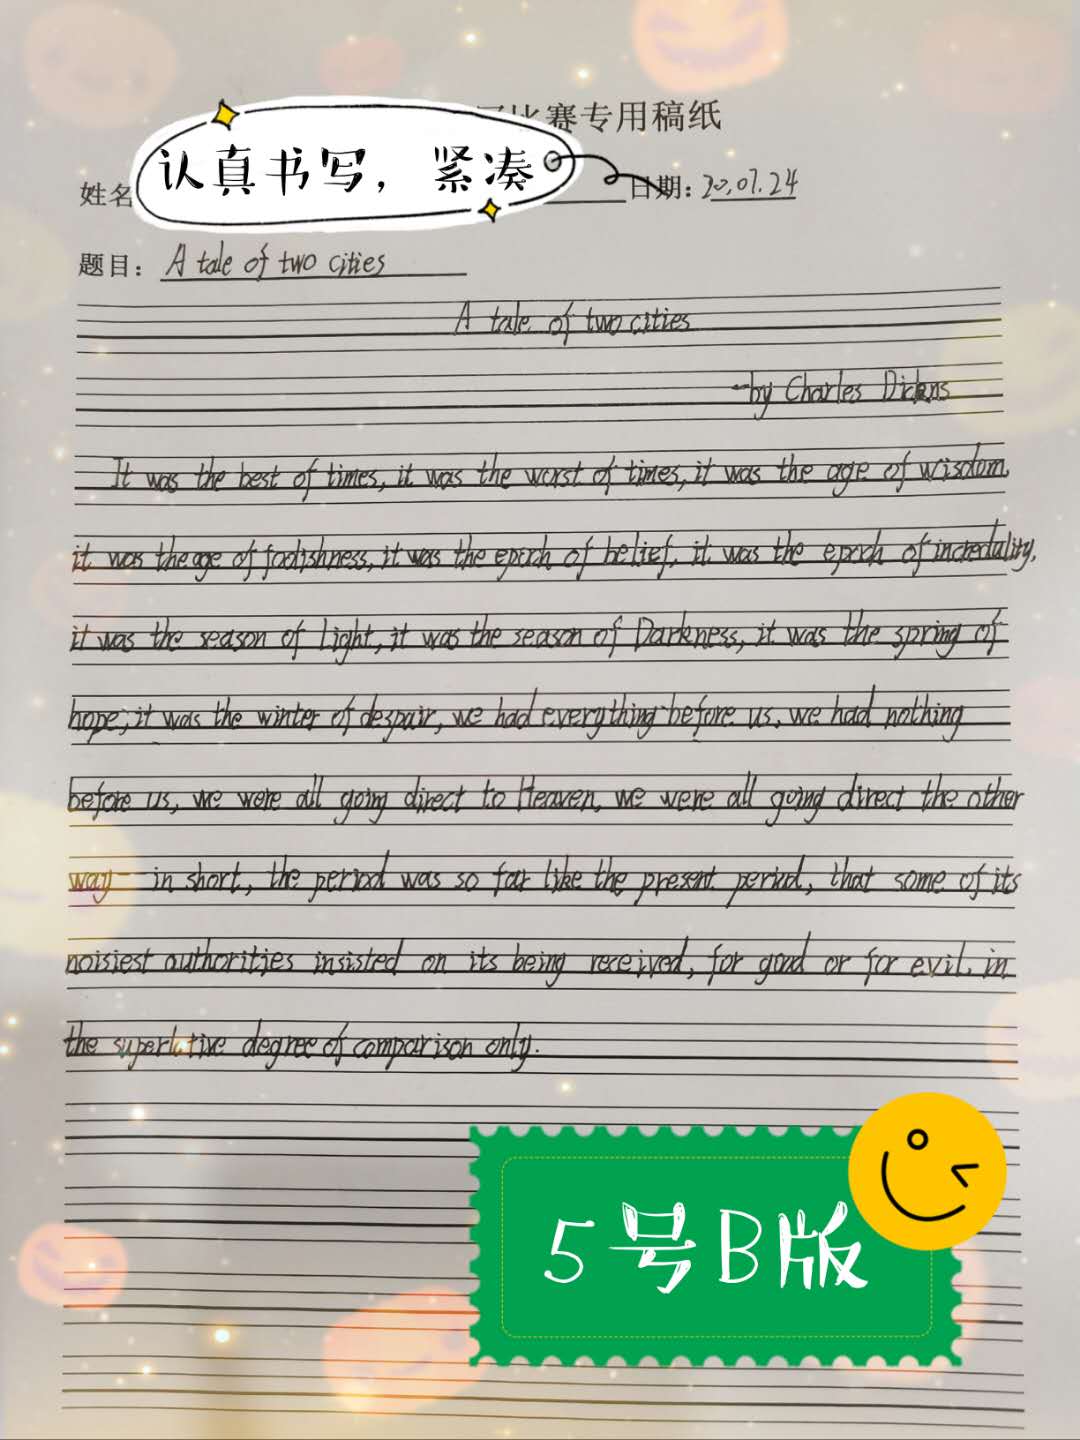 比赛专用稿纸
认真书写，紧凑
姓名
日期：20.07.24
题目： A tale of two cities
A tale of two cities
—by Charles Dickens
It was the best of times, it was the worst of times, it was the age of wisdom,
it was the age of foolishness, it was the epoch of belief, it was the epoch of incredulity,
it was the season of light, it was the season of Darkness, it was the spring of
hope; it was the winter of despair, we had everything before us, we had nothing
before us, we were all going direct to Heaven, we were all going direct the other
way— in short, the period was so far like the present period, that some of its
noisiest authorities insisted on its being received, for good or for evil, in
the superlative degree of comparison only.
5号B版